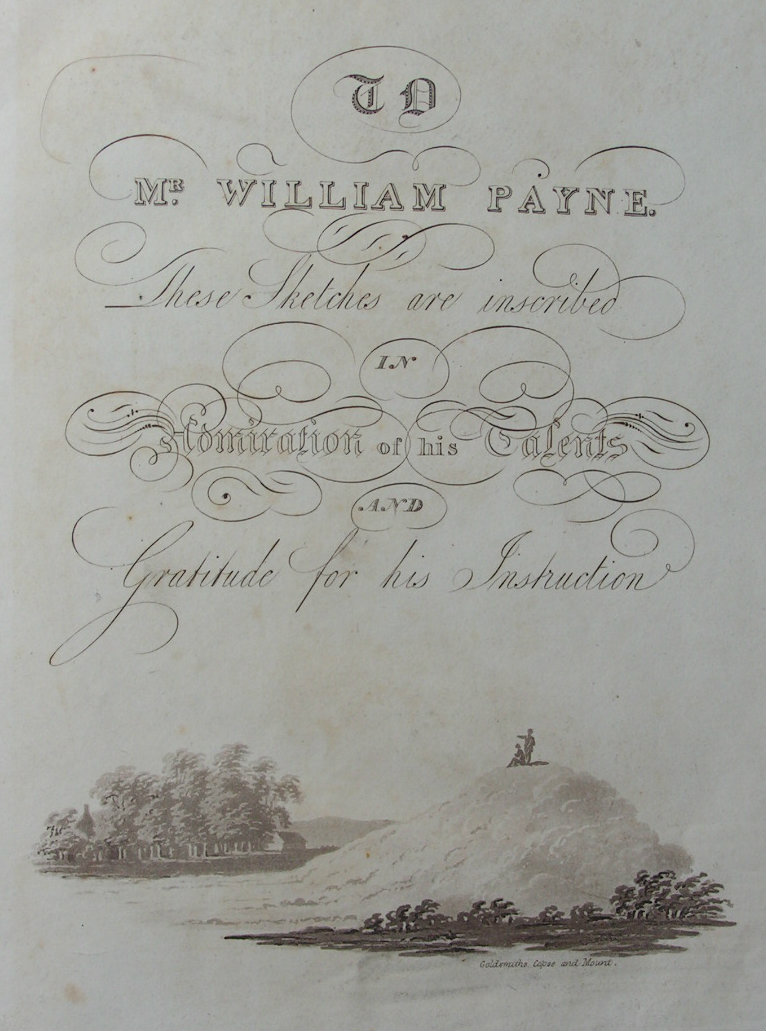 TO
MR. WILLIAM PAYNE.
These Sketches are inscribed
IN
Admiration of his Talents
AND
Gratitude for his Instruction
Goldsmiths Copse and Mount.